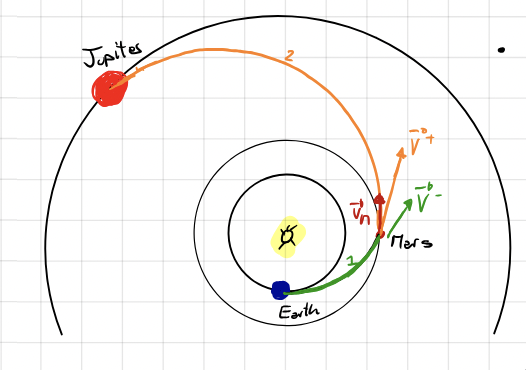 Jupites
2
V+
Vn
V-
Mars
1
Earth